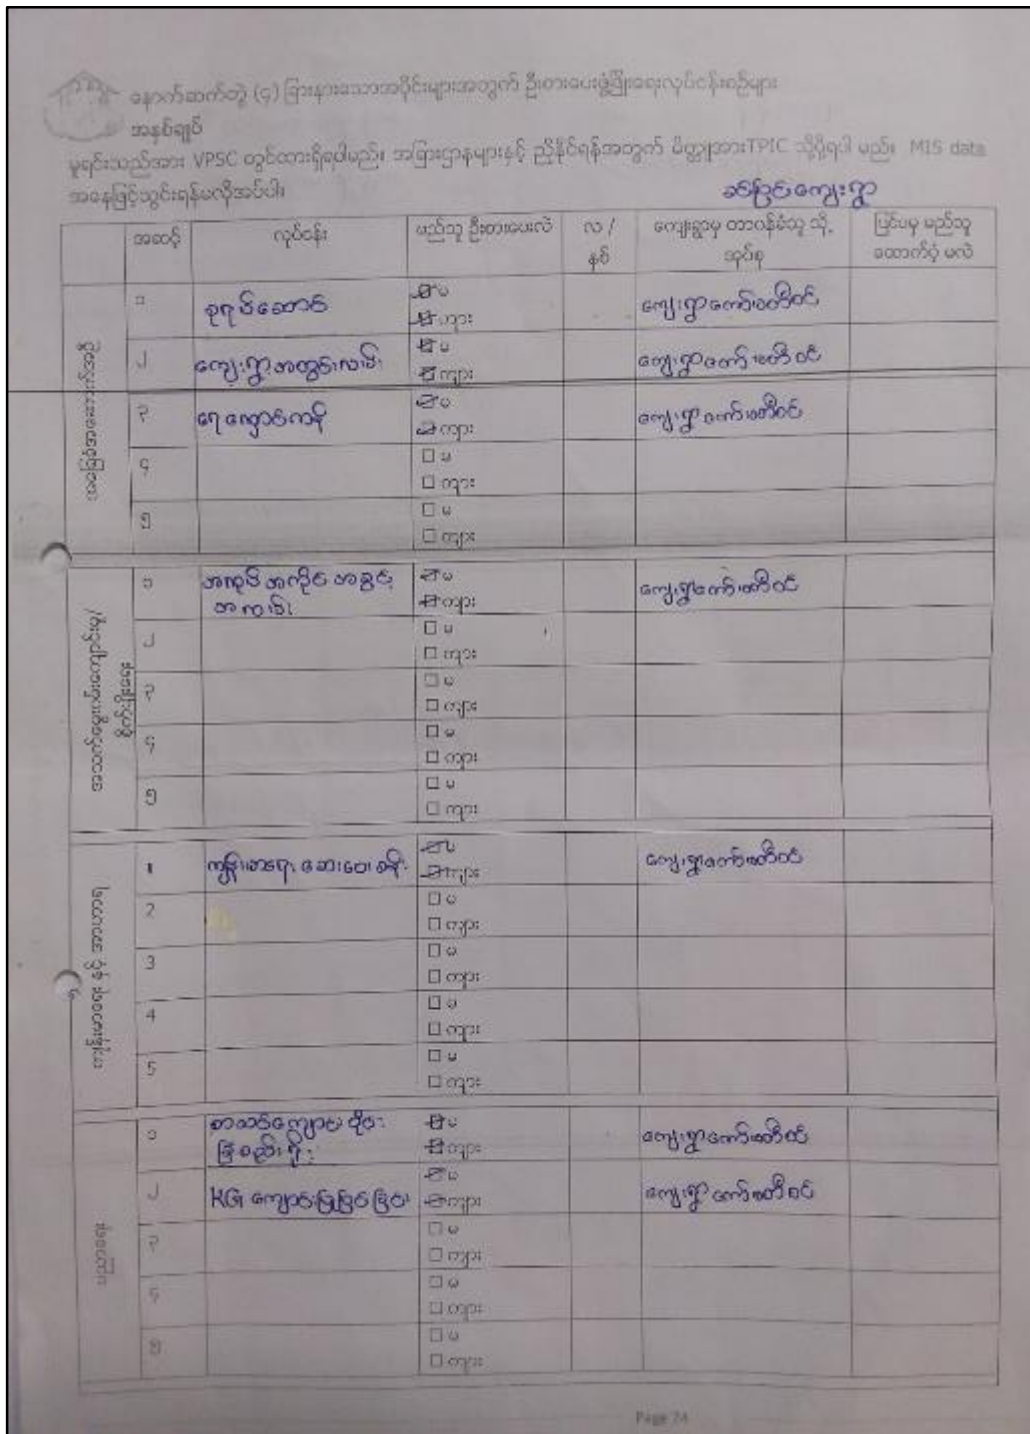 နောက်ဆက်တွဲ (၄) ခြားနားသောအပိုင်းများအတွက် ဦးစားပေးဖွံ့ဖြိုးရေးလုပ်ငန်းစဉ်များ
အနှစ်ချုပ်
မူရင်းသည်အား VPSC တွင်ထားရှိရပါမည်။ အခြားဌာနများနှင့် ညှိနှိုင်ရန်အတွက် မိတ္တူအားTPIC သို့ပို့ရပါ မည်။ MIS data
အနေဖြင့်သွင်းရန်မလိုအပ်ပါ။
ကျေးရွာ
အဆင့် လုပ်ငန်း မည်သူ ဦးစားပေးလဲ လ / ကျေးရွာမှ တာဝန်ခံသူ သို့ ပြင်ပမှ မည်သူ
နှစ် အုပ်စု ထောက်ပံ့ မလဲ
အခြေခံအဆောက်အဦ
၁ စုရပ်ဆောင် မ ကျေးရွာကော်မတီဝင်
ကျား
၂ ကျေးရွာအတွင်းလမ်း မ ကျေးရွာကော်မတီဝင်
ကျား
၃ ရေလှောင်ကန် မ ကျေးရွာကော်မတီဝင်
ကျား
၄ မ
ကျား
၅ မ
ကျား
အသက်မွေးဝမ်းကျောင်းမှု/
စိုက်ပျိုးရေး
၁ မ ကျေးရွာကော်မတီဝင်
ကျား
၂ မ
ကျား
၃ မ
ကျား
၄ မ
ကျား
၅ မ
ကျား
ကျန်းမာရေး နှင့် အာဟာရ
1 ကျန်းမာရေး ဆေးပေးခန်း မ ကျေးရွာကော်မတီဝင်
ကျား
2 မ
ကျား
3 မ
ကျား
4 မ
ကျား
5 မ
ကျား
ပညာရေး
၁ စာသင်ကျောင်း ဝိုင်း မ ကျေးရွာကော်မတီဝင်
ခြံစည်းရိုး ကျား
၂ KG ကျောင်း မ ကျေးရွာကော်မတီဝင်
ကျား
၃ မ
ကျား
၄ မ
ကျား
၅ မ
ကျား
Page 74